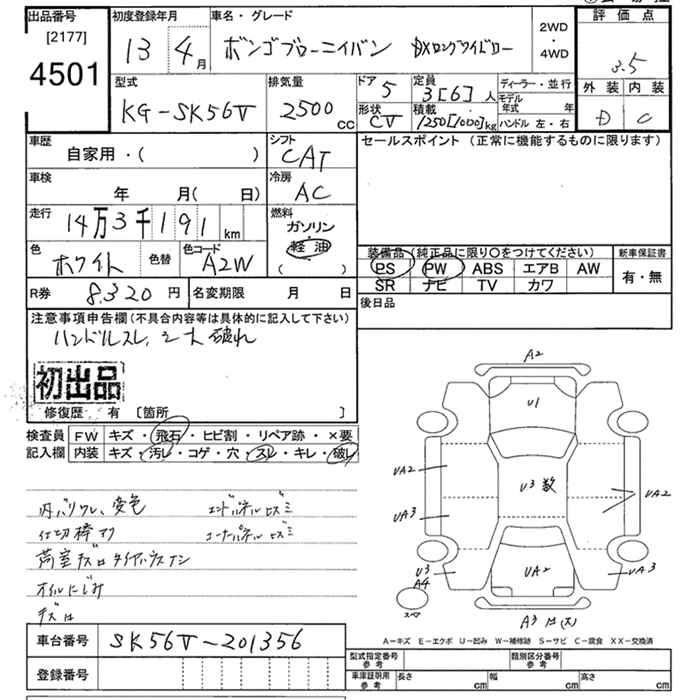 出品番号
[2177]
4501
初度登録年月
13 4月
車名・グレード
ボンゴブローニイバン DXロングワイドロー
2WD
・
4WD
評価点
3.5
外装 内装
D C
型式
KG-SK56V
排気量
2500
cc
ドア 5
形状 CV
定員 3[6]人
積載 1250[1000]kg
ディーラー・並行
モデル年式 年
ハンドル 左・右
車歴
自家用・( )
シフト
CAT
セールスポイント(正常に機能するものに限ります)
車検
年 月(日 )
冷房
AC
走行
14万3千191km
燃料
ガソリン
軽油
( )
色
ホワイト
色替
色コード
A2W
装備品(純正品に限り○をつけてください)
PS PW ABS エアB AW
SR ナビ TV カワ
新車保証書
有・無
R券 8320円
名変期限 月 日
後日品
注意事項申告欄(不具合内容等は具体的に記入して下さい)
ハンドルスレ、シート破れ
初出品
修復歴・有 〔箇所 〕
検査員
記入欄
FW キズ・飛石・ヒビ割・リペア跡・×要
内装 キズ・汚レ・コゲ・穴・スレ・キレ・破レ
内バリワレ、変色 エンドパネルヒズミ
仕切棒サリ コーナーパネルヒズミ
荷室キズ
オイルにじみ
A2
U1
UA2
U3 数
UA2
UA3
U3
A4
UA2
UA3
スペア
A3
A-キズ E-エクボ U-凹み W-補修跡 S-サビ C-腐食 XX-交換済
車台番号 SK56V-201356
登録番号
型式指定番号
参考
類別区分番号
参考
車庫証明用
参考
長さ cm
幅 cm
高さ cm